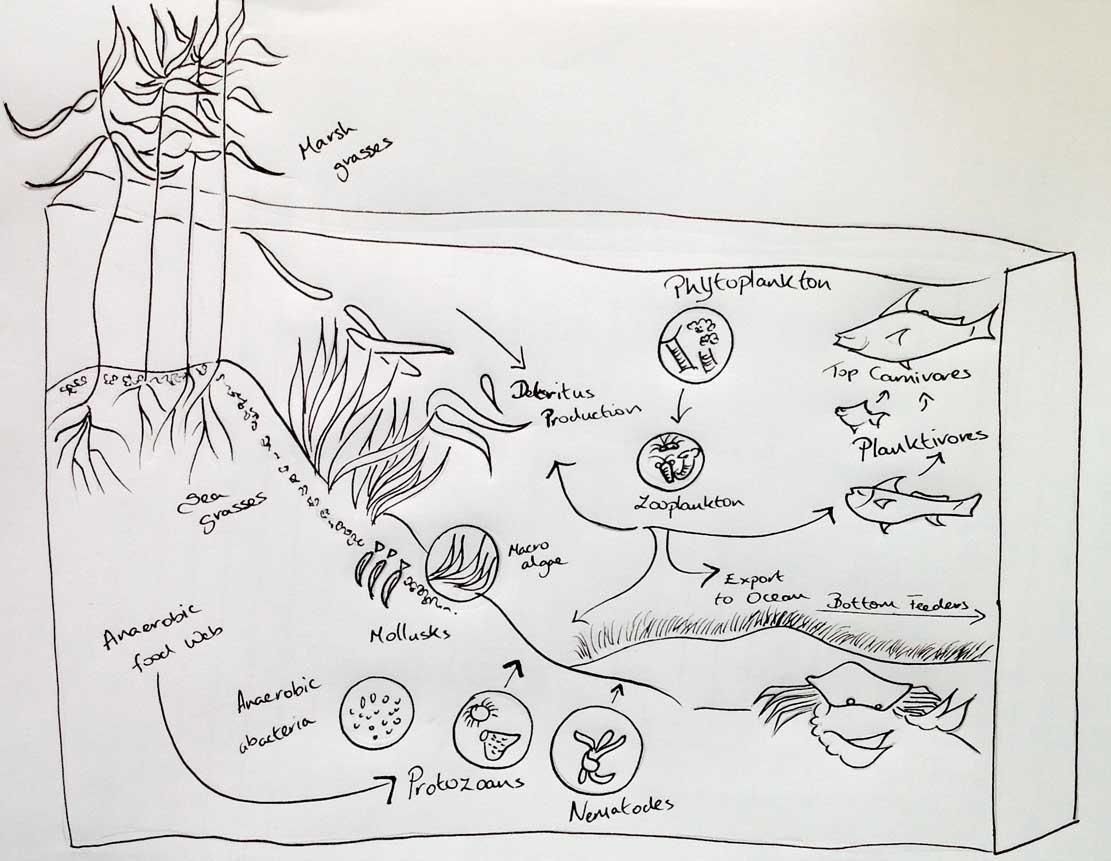 Marsh
grasses
Phytoplankton
Top Carnivores
Detritus
Production
Planktivores
Sea
grasses
Zooplankton
Macro
algae
Export
to Ocean
Bottom Feeders
Mollusks
Anaerobic
food web
Anaerobic
abacteria
Protozoans
Nematodes